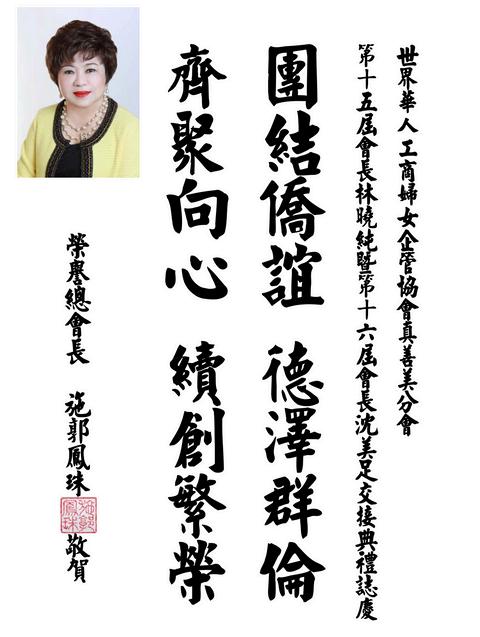 世界華人工商婦女企管協會真善美分會
第十五屆會長林曉純暨第十六屆會長沈美足交接典禮誌慶
團結僑誼 德澤群倫
齊聚向心 續創繁榮
榮譽總會長 施郭鳳珠 敬賀
施郭鳳珠